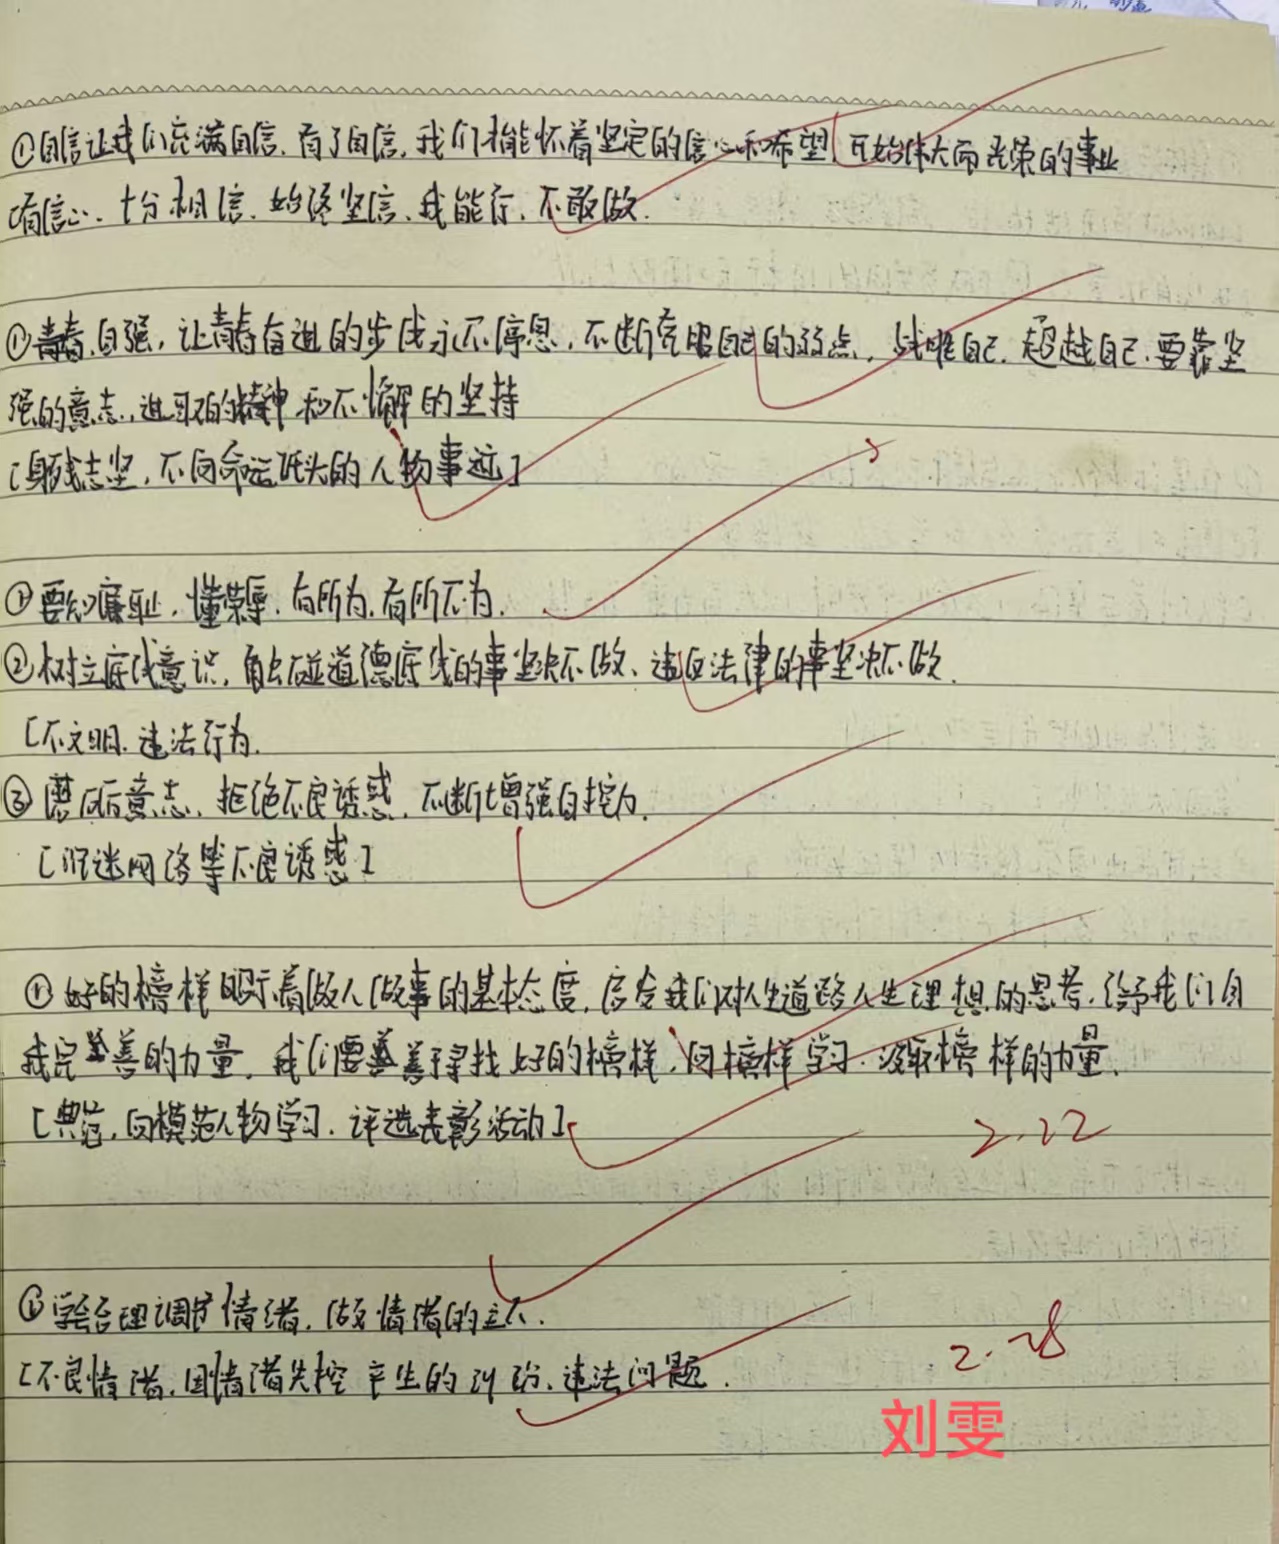 ①自信让我们充满自信，有了自信，我们才能怀着坚定的信心和希望，开始伟大而光荣的事业
[有信心、十分相信、始终坚信、我能行、不敢做.
①青春自强，让青春奋进的步伐永不停息，不断克服自己的弱点，战胜自己、超越自己，要靠坚
强的意志，进取的精神和不懈的坚持
[身残志坚，不向命运低头的人物事迹]
①要知廉耻，懂荣辱，有所为，有所不为.
②树立底线意识，触碰道德底线的事坚决不做、违反法律的事坚决不做.
[不文明、违法行为.
③磨砺意志、拒绝不良诱惑，不断增强自控力.
[沉迷网络等不良诱惑]
①好的榜样昭示着做人做事的基本态度，启发我们对人生道路人生理想的思考，给予我们自
我完善的力量，我们要善于寻找好的榜样，向榜样学习，汲取榜样的力量.
[典范，向模范人物学习、评选表彰活动]
2.22
①学会合理调节情绪，做情绪的主人.
2.28
[不良情绪，因情绪失控产生的纠纷、违法问题.
刘雯